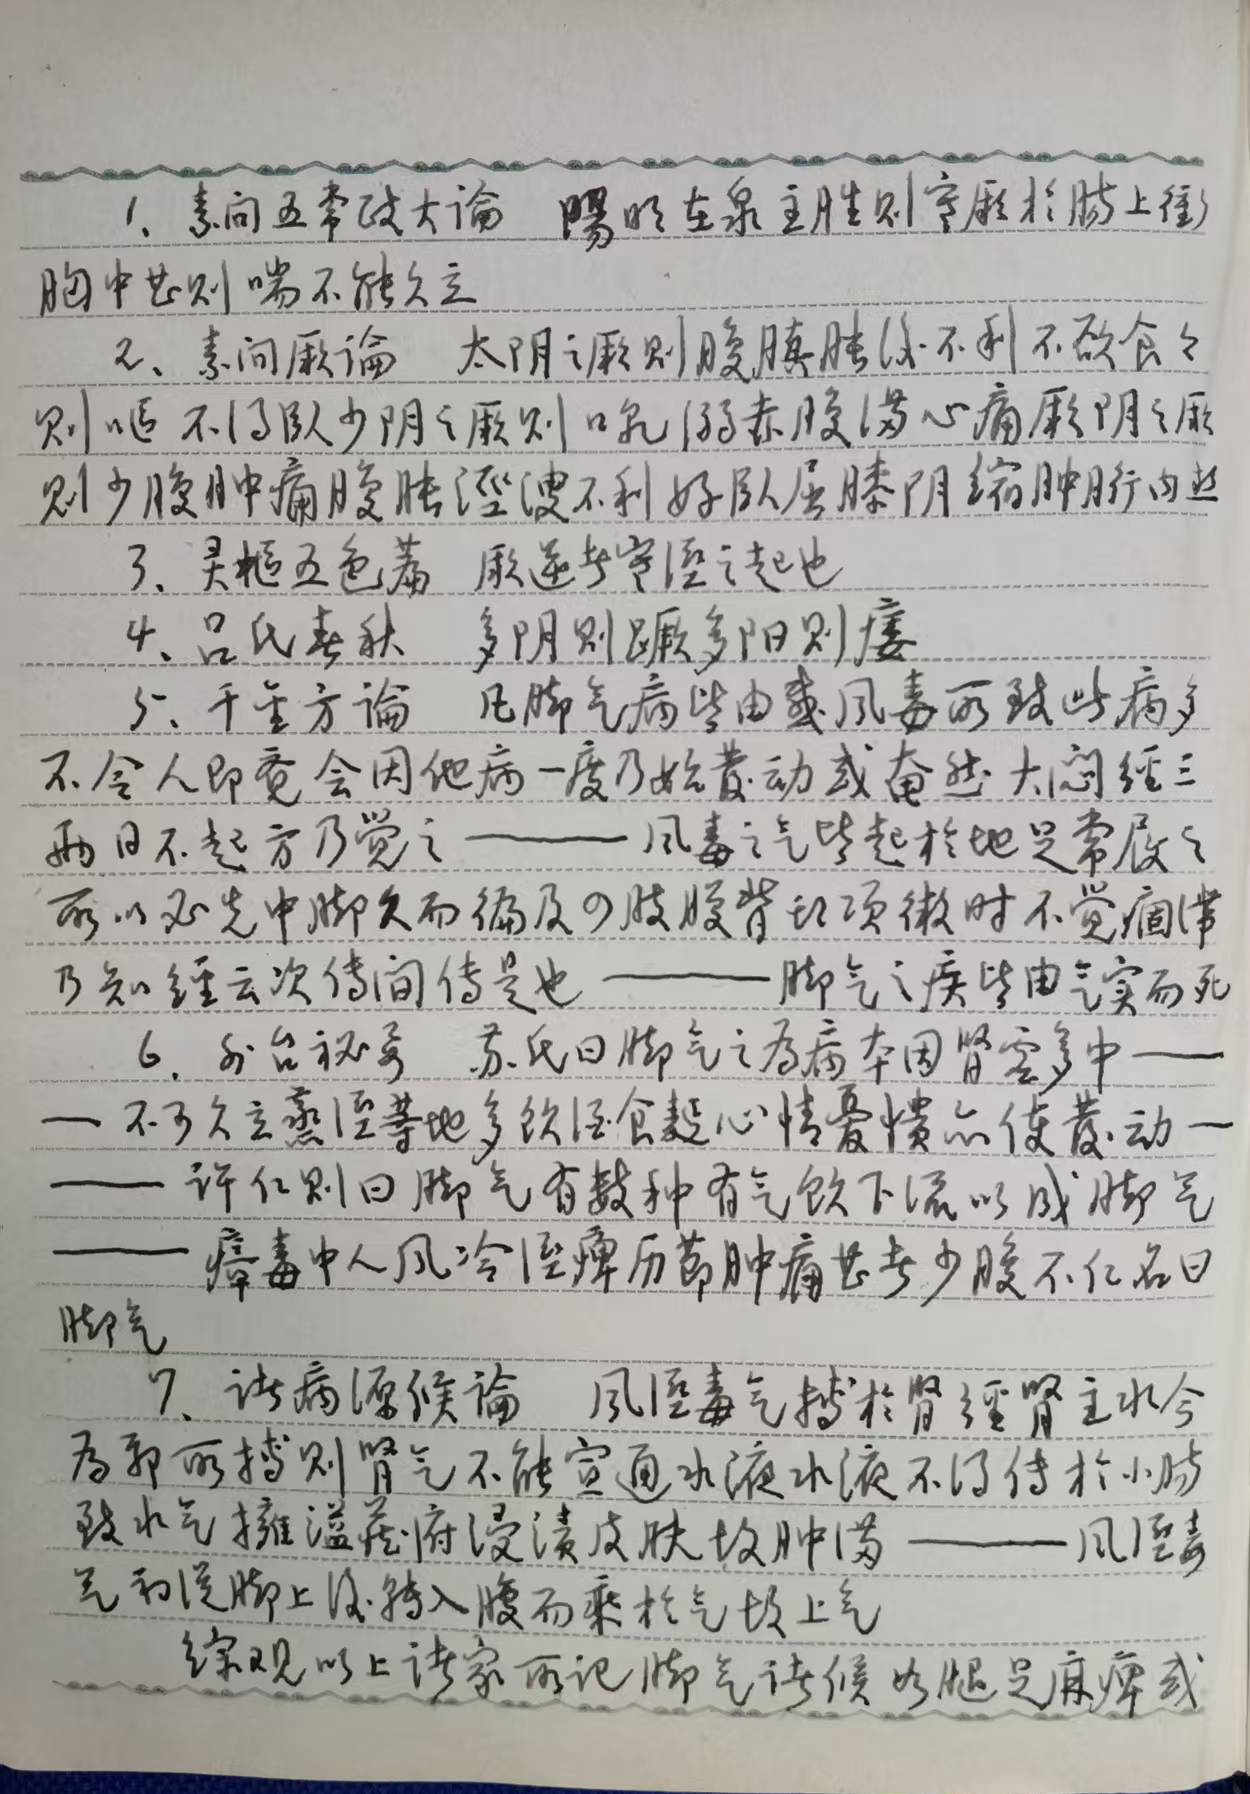 1、素问五常政大論 陽明在泉主胜则寒厥於腸上衝
胸中甚则喘不能久立
2、素问厥論 太阴之厥则腹䐜胀後不利不欲食々
则呕不得臥少阴之厥则口乾溺赤腹满心痛厥阴之厥
则少腹肿痛腹胀涇溲不利好臥屈膝阴缩肿胻内热
3、灵樞五色萹 厥逆者寒湿之起也
4、吕氏春秋 多阴则蹶多阳则痿
5、千金方論 凡脚气病皆由感风毒所致此病多
不令人即觉会因他病一度乃始發动或奄然大闷经三
两日不起方乃觉之———风毒之气皆起於地足常履之
所以必先中脚久而徧及四肢腹背头项微时不觉痼滞
乃知经云次传间传是也———脚气之疾皆由气实而死
6、外台秘要 苏氏曰脚气之为病本因肾虚多中——
—不可久立蒸湿等地多饮酒食麪心情憂愦亦使發动—
——許仁则曰脚气有数种有气饮下流以成脚气
———瘴毒中人风冷湿痺历節肿痛甚者少腹不仁名曰
脚气
7、诸病源候論 风湿毒气搏於肾经肾主水今
为邪所搏则肾气不能宣通水液水液不得传於小肠
致水气擁溢藏府浸渍皮肤故肿满———风湿毒
气初從脚上後转入腹而乘於气故上气
综观以上诸家所记脚气诸候如腿足麻痺或